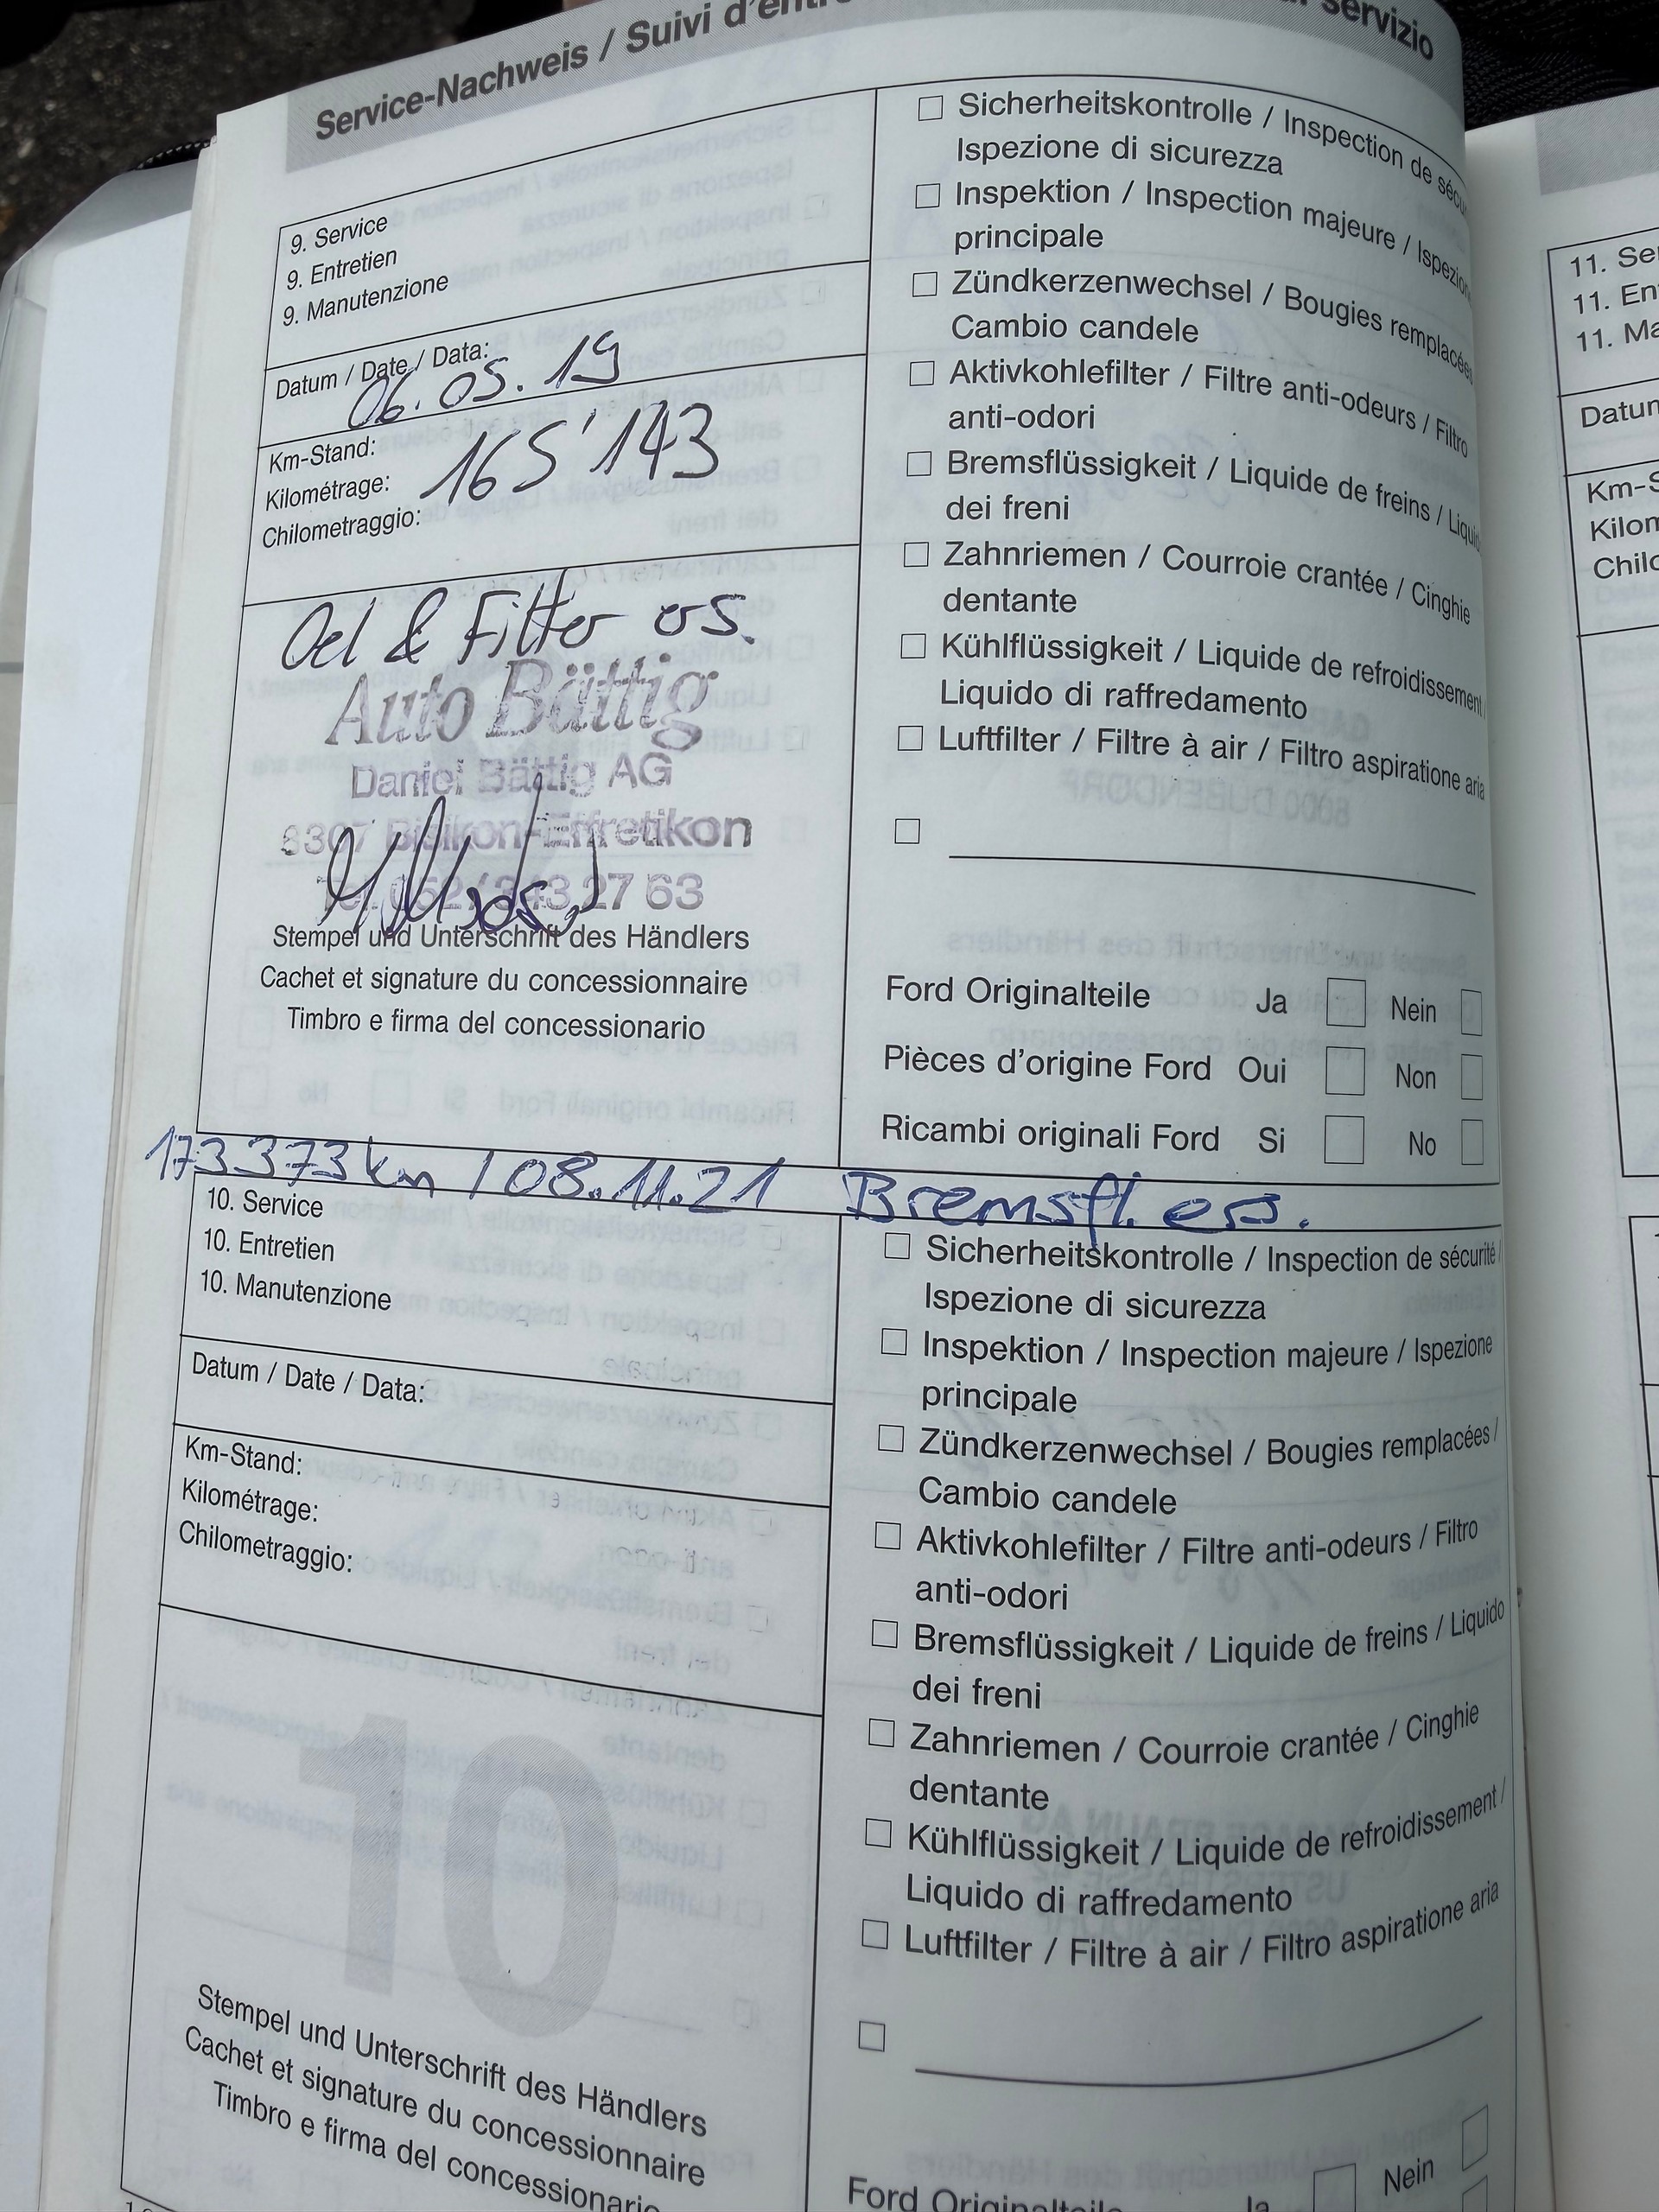 Service-Nachweis / Suivi d'entr
servizio
9. Service
9. Entretien
9. Manutenzione
Datum / Date / Data:
06.05.19
Km-Stand:
Kilométrage:
Chilometraggio:
165'143
Oel & Filter ers.
Auto Bättig
Daniel Bättig AG
8307 Bisikon-Effretikon
Tel. 052/343 27 63
Stempel und Unterschrift des Händlers
Cachet et signature du concessionnaire
Timbro e firma del concessionario
Sicherheitskontrolle / Inspection de sécur
Ispezione di sicurezza
Inspektion / Inspection majeure / Ispezion
principale
Zündkerzenwechsel / Bougies remplacées
Cambio candele
Aktivkohlefilter / Filtre anti-odeurs / Filtro
anti-odori
Bremsflüssigkeit / Liquide de freins / Liquid
dei freni
Zahnriemen / Courroie crantée / Cinghie
dentante
Kühlflüssigkeit / Liquide de refroidissement /
Liquido di raffredamento
Luftfilter / Filtre à air / Filtro aspiratione aria
Ford Originalteile Ja Nein
Pièces d'origine Ford Oui Non
Ricambi originali Ford Si No
173373 km / 08.11.21 Bremsfl. ers.
10. Service
10. Entretien
10. Manutenzione
Datum / Date / Data:
Km-Stand:
Kilométrage:
Chilometraggio:
10
Stempel und Unterschrift des Händlers
Cachet et signature du concessionnaire
Timbro e firma del concessionario
Sicherheitskontrolle / Inspection de sécurité /
Ispezione di sicurezza
Inspektion / Inspection majeure / Ispezione
principale
Zündkerzenwechsel / Bougies remplacées /
Cambio candele
Aktivkohlefilter / Filtre anti-odeurs / Filtro
anti-odori
Bremsflüssigkeit / Liquide de freins / Liquido
dei freni
Zahnriemen / Courroie crantée / Cinghie
dentante
Kühlflüssigkeit / Liquide de refroidissement /
Liquido di raffredamento
Luftfilter / Filtre à air / Filtro aspiratione aria
Ford Originalteile Ja Nein
11. Se
11. En
11. Ma
Datum
Km-S
Kilom
Chilo